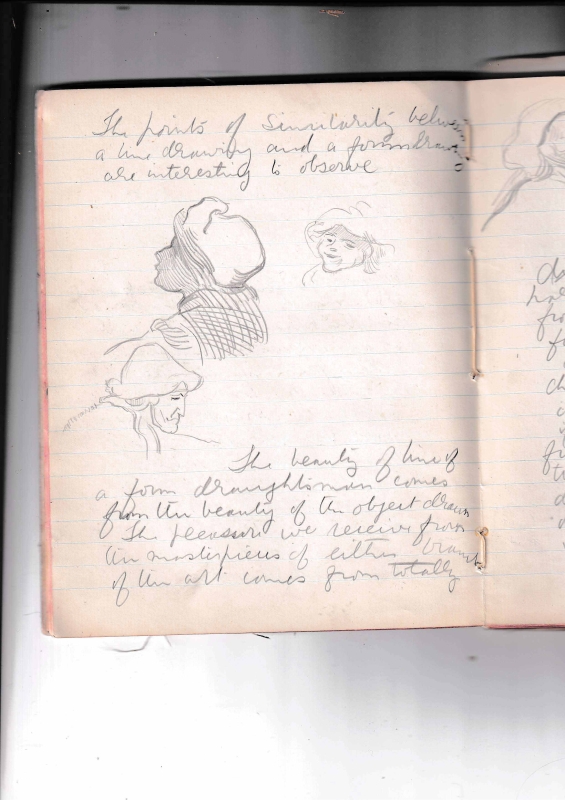 The points of Similarity between
a line drawing and a form drawing
are interesting to observe
The beauty of line of
a form draughtsman comes
from the beauty of the object drawn
The pleassure we receive from
the masterpieces of either branch
of the art comes from totally